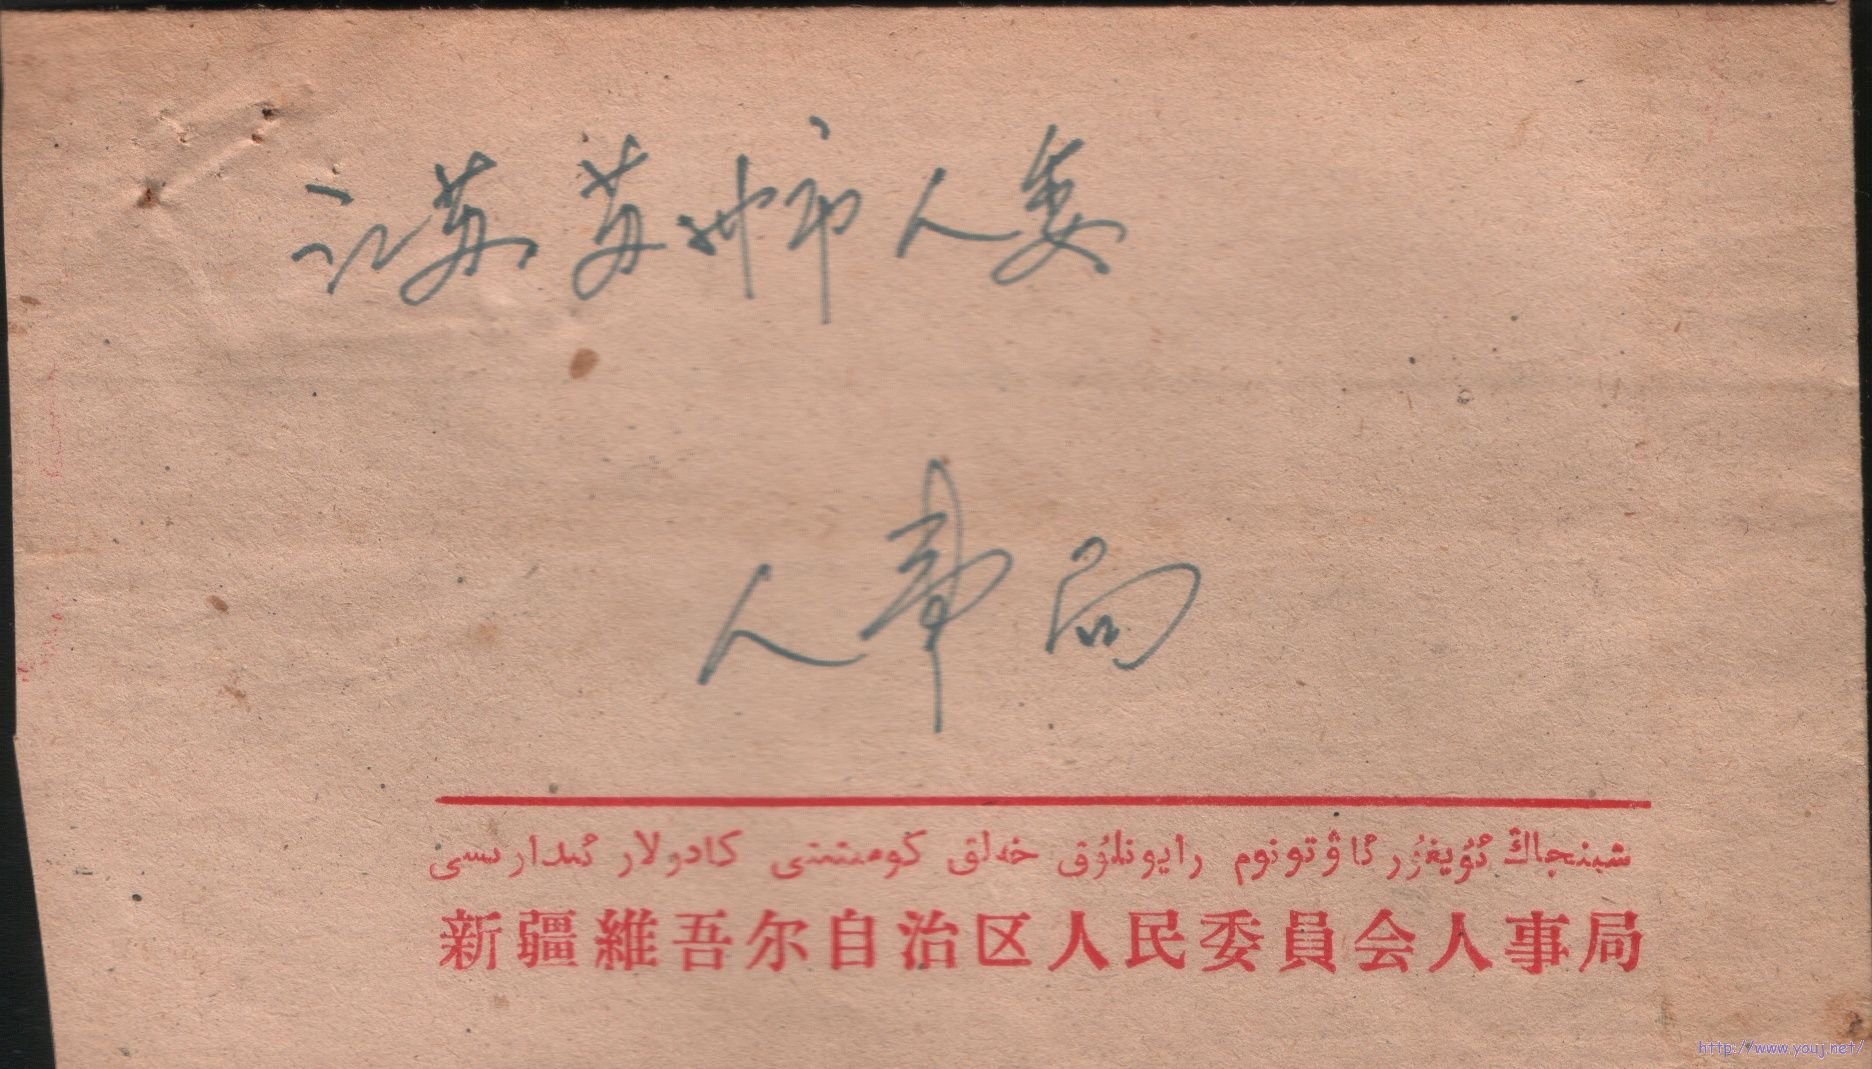 江苏苏州市人委
人事局
شىنجاڭ ئۇيغۇر ئاۋتونوم رايونلۇق خەلق كومىتىتى كادرلار ئىدارىسى
新疆維吾尔自治区人民委員会人事局
http://www.youj.net/